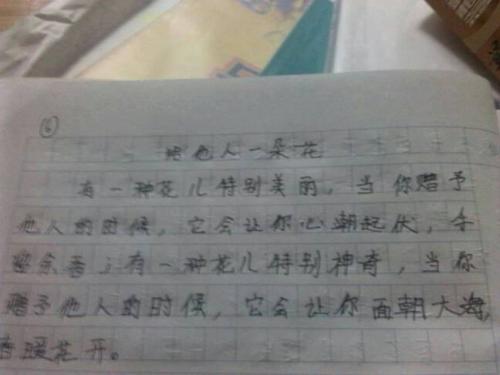 ⑥
给他人一朵花
有一种花儿特别美丽，当你赠予
他人的时候，它会让你心潮起伏，手
有一种花儿特别神奇，当你
赠予他人的时候，它会让你面朝大海，
春暖花开。